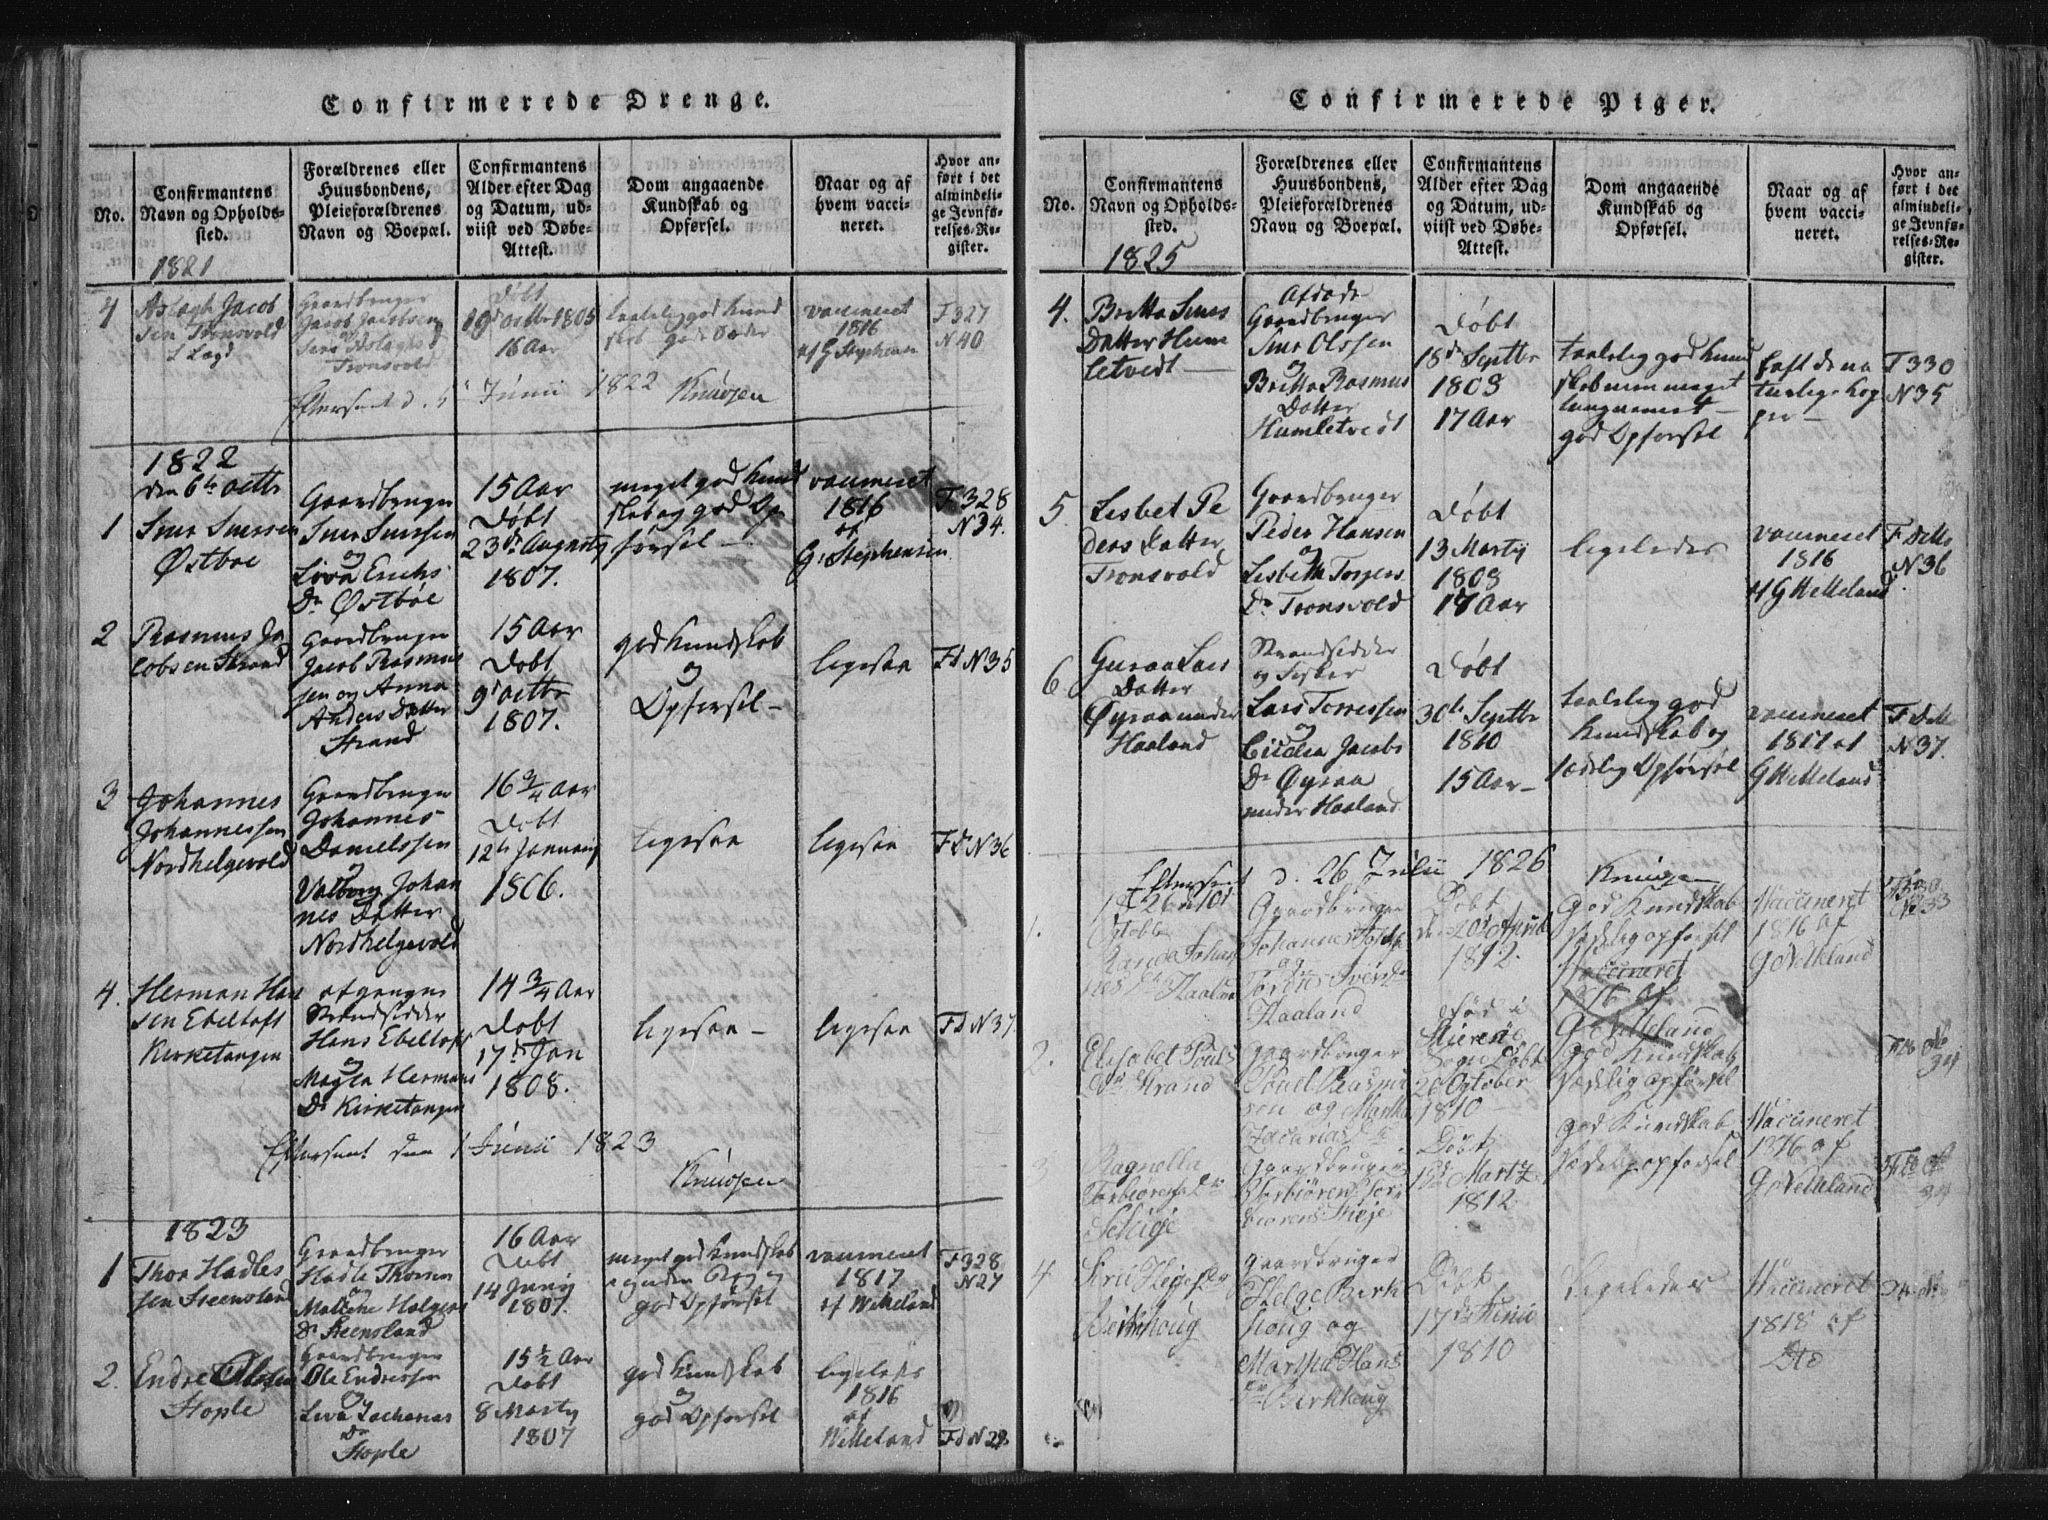 Confirmerede Drenge.
No.
Confirmantens
Navn og Opholds-
sted.
Forældrenes eller
Huusbondens,
Pleieforældrenes
Navn og Boepæl.
Confirmantens
Alder efter Dag
og Datum, ud-
viist ved Døbe-
Attest.
Dom angaaende
Kundskab og
Opførsel.
Naar og af
hvem vacci-
neret.
Hvor an-
ført i det
almindeli-
ge Jevnfø-
relses-Re-
gister.
1821
4
Aslagh Jacob
sen Tronsvold
Gaardbruger
Jacob Jacobsen
og
Tronsvold
Døbt
19d octbr 1805
16 Aar
taalelig god Kund
skab gode Sæder
vaccineret
1816
af G Stephensen
F 327
N 40
Efterseet d. 5 Junii 1822 Knudsen
1822
den 6te octbr
1
Østboe
Gaardbruger
og
Erichs
Dr Østbøe
15 Aar
Døbt
23de Augusty
1807.
meget god Kund
skab og god Op
førsel —
vaccineret
1816
af
G. Stephensen
F 328
N 34.
2
Rasmus Ja
cobsen Strand
Gaardbruger
Jacob Rasmus
sen og Anna
Anders Datter
Strand
15 Aar
Døbt
9d octbr
1807.
god Kundskab
og
Opførsel —
ligesaa
Fd N 35
3
Johannes
Johannessen
Nordhelgevold
Gaardbruger
Johannes
Danielssen
og
Valborg Johan
nes Datter
Nordhelgevold
16 3/4 Aar
Døbt
12te January
1806.
ligesaa
ligesaa
Fd N 36
4.
Herman Han
sen Ebeltoft
Kirketangen
afgangne
Strandsidder
Hans Ebeltoft
og
Magla Hermans
Dr Kirketangen
14 3/4 Aar
Døbt
17de Jan
1808.
ligesaa —
ligesaa
Fd N 37.
Efterseet den 1 Junii 1823
Knudsen
1823
1
Thor Hadles
sen Steensland
Gaardbruger
Hadle Thorsen
og
Malene Holgers
Dr Steensland
16 Aar
Døbt
14 Juny
1807.
meget god Kundskab
god Opførsel
vaccineret
1817
af Wekeland
F 328
N 27
2.
Endre Olssen
Stople
Gaardbruger
Ole Endressen
og
Liva Zacharias
Dr
Stople
15 1/2 Aar
Døbt
8 Marty
1807
god Kundskab
og
god Opførsel
ligeledes
1816
af
Wekeland
Fd N 28.
Confirmerede Piger.
No.
Confirmantens
Navn og Opholds-
sted.
Forældrenes eller
Huusbondens,
Pleieforældrenes
Navn og Boepæl.
Confirmantens
Alder efter Dag
og Datum, ud-
viist ved Døbe-
Attest.
Dom angaaende
Kundskab og
Opførsel.
Naar og af
hvem vacci-
neret.
Hvor an-
ført i det
almindeli-
ge Jevnfø-
relses-Re-
gister.
1825
4.
Britta
Datter Hum
letvedt —
Afdøde
Gaardbruger
Olssen
og
Britta Rasmus
Datter
Humletvedt
Døbt
18de Septbr
1808
17 Aar
taalelig god Kund
skab men meget
tungnemet —
god Opførsel
haft de na
turlige Kop
per —
F 330
N 35
5
Lisbet Pe
ders Datter
Tronsvold
Gaardbruger
Peder Hansen
og
Lisbeth Torgers
Dr Tronsvold
Døbt
13 Marty
1808
17 Aar
ligeledes
vaccineret
1816
af G Wekeland
F Ditto
N 36
6
Guraa Lars
Datter
Øyraa under
Haaland
Strandsidder
og Fisker
Lars Torressen
og
Cicilia Jacobs
Dr Øyraa
under Haaland
Døbt
30te Septbr
1810
15 Aar —
taalelig god
Kundskab og
sædelig Opførsel
vaccineret
1817 af
G Wekeland
F Ditto
N 37.
Efterseet d. 26 Julii 1826 Knudsen
1.
1826 d 1ste
Octobr
Johan
nes Dr Haaland
Gaardbruger
Johannes
og
Iversdr
Haaland
Døbt
den 20d April
1812.
God Kundskab
Sædelig opførsel
Vaccineret
1816 af
G Velkland
Vaccineret
1816 af
G Velkland
F 330
N 33
2.
Elisabet Pouls
dr Strand
Gaardbruger
Pouel Rasmu
sen og Martha
Zacarias dr
født i
Skierend
Sogn Døbt
20 October
1810 —
God Kundskab
Sædelig opførsel
3
Ragnella
Torbiørns dr
Schige
Gaardbruger
Torbiørn
Døbt
Martz
1812.
god Kundskab
Sædelig opførsel
Vaccineret
1816 af
G Velkland
4
Siri Helges dr
Berkhoug
Gaardbruger
Helge Berk
houg og
Martha Hans
dr Berkhoug
Døbt
17de Junio
1810
Ligeledes
Vaccineret
1818 af
Dto